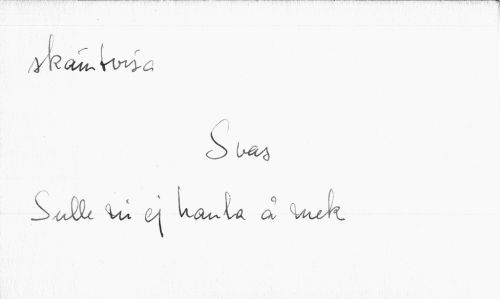 skämtvisa
Svas
Sulle ni ej hanta å mek